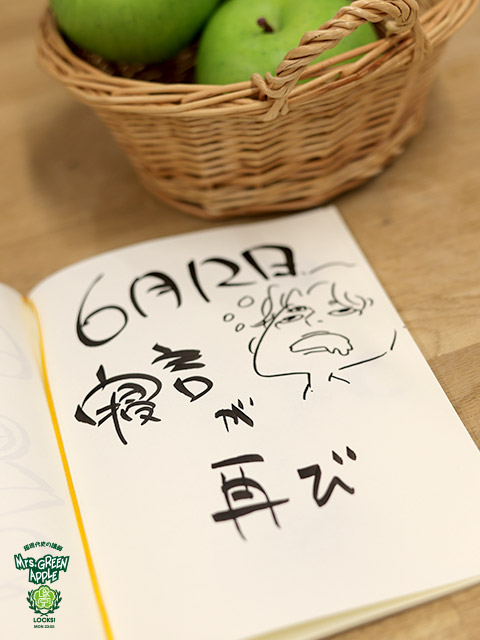 6月12日
寝言
が
再び
超現代史の講師
Mrs. GREEN
APPLE
LOCKS!
MON 23:08